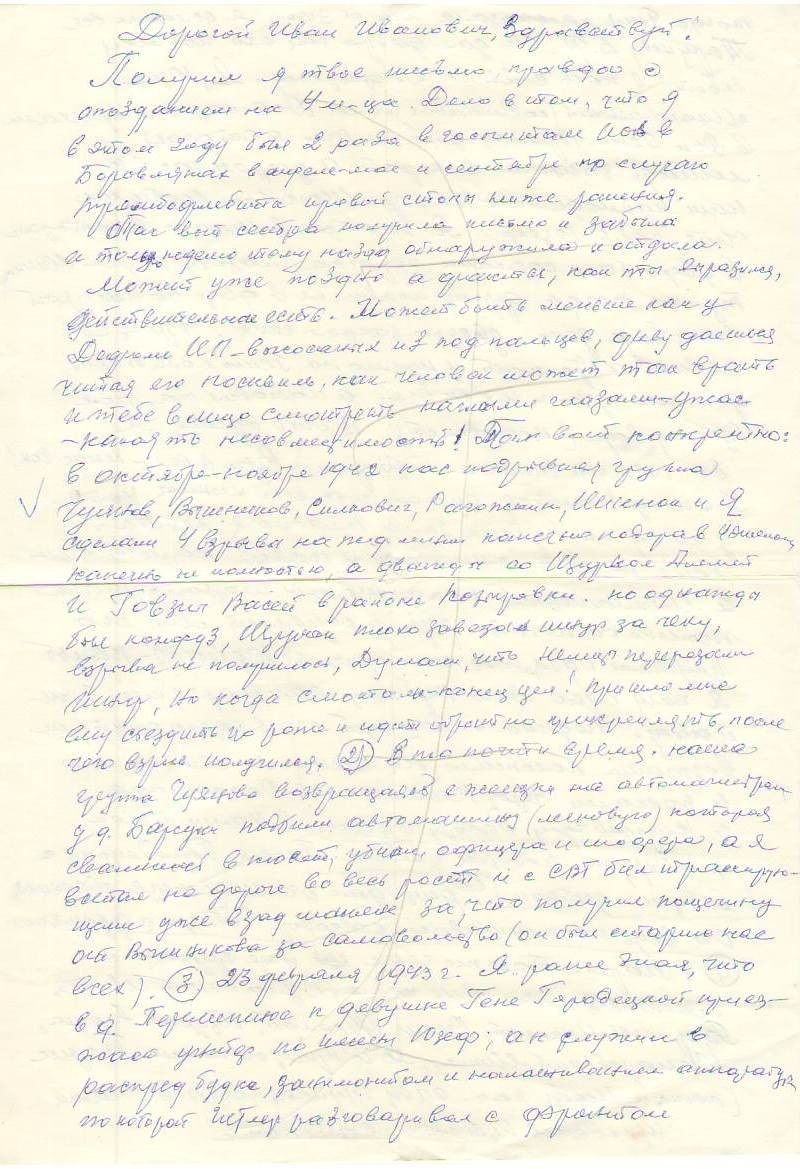 Дорогой Иван Иванович, Здравствуй.
Получил я твое письмо, правда с
опозданием на 4 м-ца. Дело в том, что я
в этом году был 2 раза в госпитале ИОВ в
Боровлянах в апреле-мае и сентябре по случаю
тромбофлебита правой стопы ниже ранения.
Так вот сестра получила письмо и забыла
и только неделю тому назад обнаружила и отдала.
Может уже поздно а факты, как ты выразился,
действительно есть. Может быть меньше как у
Дедюли ИП - высосаных из под пальцев, диву даешься
читая его пасквиль, как человек может так врать
и тебе в лицо смотреть наглыми глазами - ужас
- какая то несовместимость! Так вот конкретно:
в октябре-ноябре 1942 нас подрывная группа
Чуянов, Вышников, Силкович, Рагожкин, и Я
сделали 4 взрыва на жд линии
конечно не полностью, а дважды со
и Говзич Васей в районе Козыровки. но однажды
был конфуз, плохо завязал шнур за чеку,
взрыва не получилось, Думали, что немцы перерезали
шнур, Но когда смотали - конец цел! Пришлось мне
ему съездить по роже и идти обратно прикреплять, после
чего взрыв получился. (2) В то почти время. наша
группа Чуянова возвращаясь с на автомагистрали
у д. Барсуки подбили автомашину (легковую) которая
свалилась в кювет, убили офицера и шофера, а я
встал на дороге во весь рост и с СВТ бил трассирую-
щими уже взад за, что получил пощечину
от Вышникова за самовольство (он был старше нас
всех). (3) 23 февраля 1943 г. Я. ранее зная, что
в д. к девушке Гене Городецкой приез-
жает унтер по имени Юзеф; а он служил в
распред будке, занимался и налаживанием аппаратуры
по которой Гитлер разговаривал с фронтом